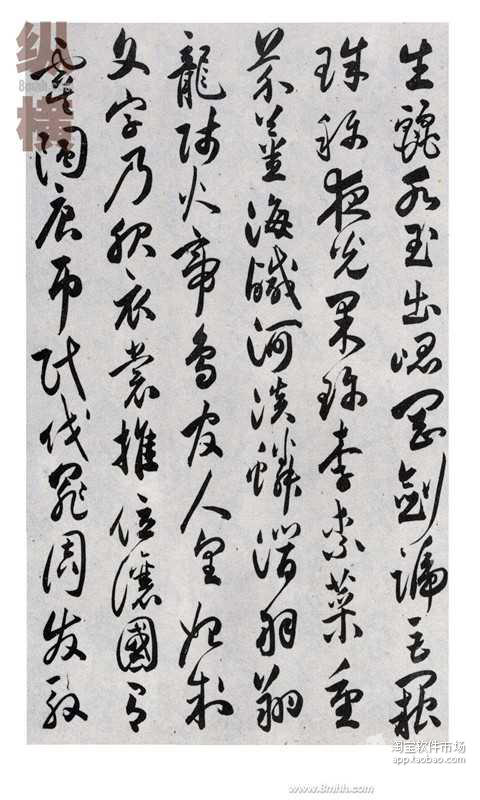 生麗水玉出崑岡劍號巨闕
珠稱夜光果珍李柰菜重
芥薑海鹹河淡鱗潛羽翔
龍師火帝鳥官人皇始制
文字乃服衣裳推位讓國有
虞陶唐弔民伐罪周發殷
纵横
淘宝软件市场
app.taobao.com
www.8mhh.com